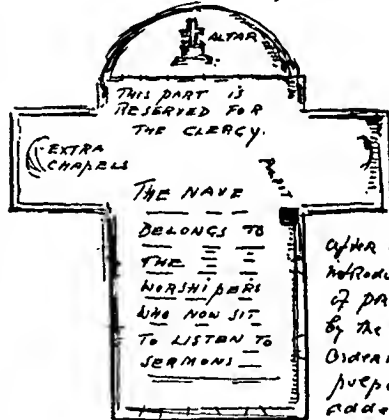 ALTAR
THIS PART IS
RESERVED FOR
THE CLERGY.
EXTRA
CHAPELS
PULPIT
THE NAVE
BELONGS TO
THE
WORSHIPERS
WHO NOW SIT
TO LISTEN TO
SERMONS
after
of
by the